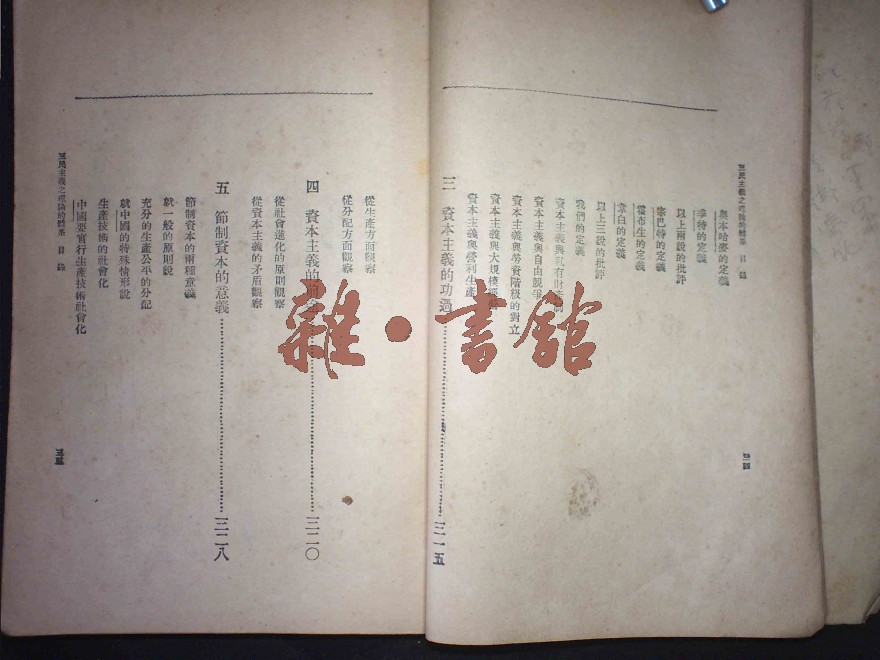 三民主義之理論的體系 目錄
奧本哈麥的定義
季特的定義
以上兩說的批評
桑巴特的定義
霍布生的定義
韋白的定義
以上三說的批評
我們的定義
資本主義與私有財產制
資本主義與自由競爭
資本主義與勞資階級的對立
資本主義與大規模經營
資本主義與營利生產
三 資本主義的功過 三一五
從生產方面觀察
從分配方面觀察
四 資本主義的 三二〇
從社會進化的原則觀察
從資本主義的矛盾觀察
五 節制資本的意義 三二八
節制資本的兩種意義
就一般的原則說
充分的生產公平的分配
就中國的特殊情形說
生產技術的社會化
中國要實行生產技術社會化
三民主義之理論的體系 目錄
雜·書館